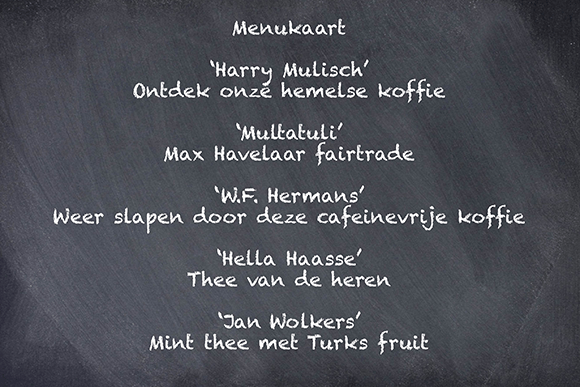 Menukaart
‘Harry Mulisch’
Ontdek onze hemelse koffie
‘Multatuli’
Max Havelaar fairtrade
‘W.F. Hermans’
Weer slapen door deze cafeinevrije koffie
‘Hella Haasse’
Thee van de heren
‘Jan Wolkers’
Mint thee met Turks fruit